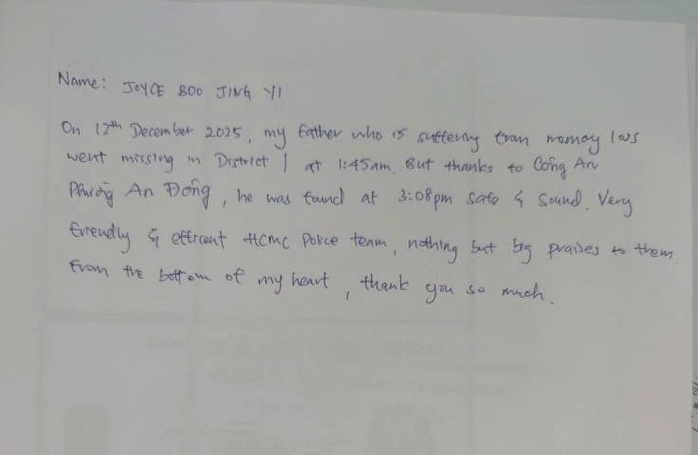 Name: JOYCE BOO JING YI
On 12th December 2025, my father who is suffering from memory loss
went missing in District 1 at 1:45am. But thanks to Công An
Phường An Đông, he was found at 3:08pm safe & sound. Very
friendly & efficient HCMC Police team, nothing but big praises to them
from the bottom of my heart, thank you so much.